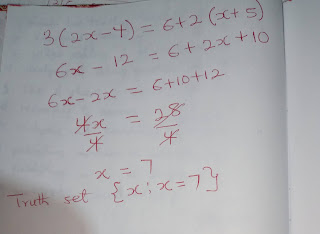 3(2x-4) = 6+2(x+5)
6x - 12 = 6 + 2x + 10
6x - 2x = 6+10+12
4x/4 = 28/4
x = 7
Truth set {x:x=7}